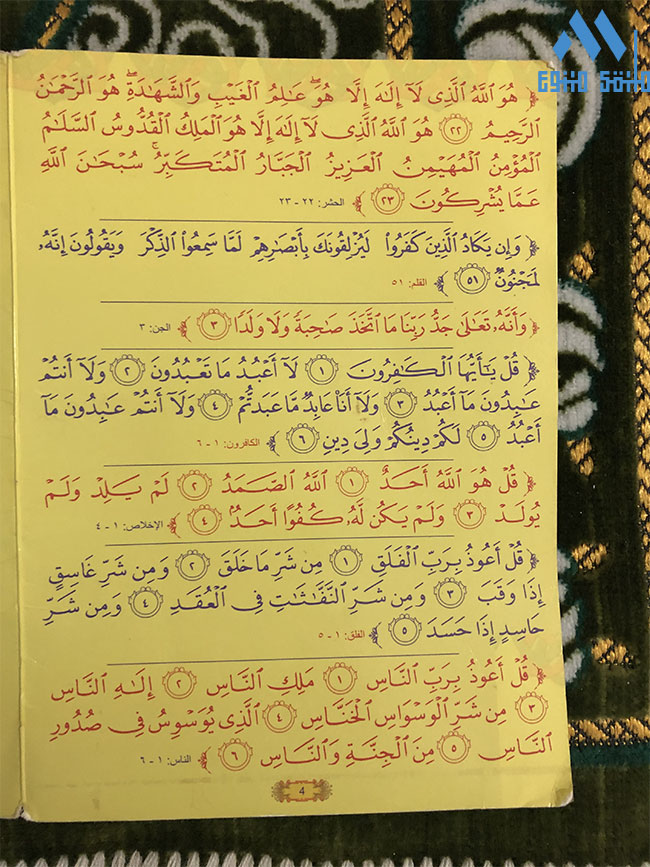 منصة منوع
﴿ هُوَ ٱللَّهُ ٱلَّذِى لَآ إِلَٰهَ إِلَّا هُوَۖ عَٰلِمُ ٱلْغَيْبِ وَٱلشَّهَٰدَةِۖ هُوَ ٱلرَّحْمَٰنُ
ٱلرَّحِيمُ ٢٢ هُوَ ٱللَّهُ ٱلَّذِى لَآ إِلَٰهَ إِلَّا هُوَ ٱلْمَلِكُ ٱلْقُدُّوسُ ٱلسَّلَٰمُ
ٱلْمُؤْمِنُ ٱلْمُهَيْمِنُ ٱلْعَزِيزُ ٱلْجَبَّارُ ٱلْمُتَكَبِّرُۚ سُبْحَٰنَ ٱللَّهِ
عَمَّا يُشْرِكُونَ ٢٣ ﴾ الحشر: ٢٢ - ٢٣
﴿ وَإِن يَكَادُ ٱلَّذِينَ كَفَرُوا۟ لَيُزْلِقُونَكَ بِأَبْصَٰرِهِمْ لَمَّا سَمِعُوا۟ ٱلذِّكْرَ وَيَقُولُونَ إِنَّهُۥ
لَمَجْنُونٌ ٥١ ﴾ القلم: ٥١
﴿ وَأَنَّهُۥ تَعَٰلَىٰ جَدُّ رَبِّنَا مَا ٱتَّخَذَ صَٰحِبَةً وَلَا وَلَدًا ٣ ﴾ الجن: ٣
﴿ قُلْ يَٰٓأَيُّهَا ٱلْكَٰفِرُونَ ١ لَآ أَعْبُدُ مَا تَعْبُدُونَ ٢ وَلَآ أَنتُمْ
عَٰبِدُونَ مَآ أَعْبُدُ ٣ وَلَآ أَنَا۠ عَابِدٌ مَّا عَبَدتُّمْ ٤ وَلَآ أَنتُمْ عَٰبِدُونَ مَآ
أَعْبُدُ ٥ لَكُمْ دِينُكُمْ وَلِىَ دِينِ ٦ ﴾ الكافرون: ١ - ٦
﴿ قُلْ هُوَ ٱللَّهُ أَحَدٌ ١ ٱللَّهُ ٱلصَّمَدُ ٢ لَمْ يَلِدْ وَلَمْ
يُولَدْ ٣ وَلَمْ يَكُن لَّهُۥ كُفُوًا أَحَدٌۢ ٤ ﴾ الإخلاص: ١ - ٤
﴿ قُلْ أَعُوذُ بِرَبِّ ٱلْفَلَقِ ١ مِن شَرِّ مَا خَلَقَ ٢ وَمِن شَرِّ غَاسِقٍ
إِذَا وَقَبَ ٣ وَمِن شَرِّ ٱلنَّفَّٰثَٰتِ فِى ٱلْعُقَدِ ٤ وَمِن شَرِّ
حَاسِدٍ إِذَا حَسَدَ ٥ ﴾ الفلق: ١ - ٥
﴿ قُلْ أَعُوذُ بِرَبِّ ٱلنَّاسِ ١ مَلِكِ ٱلنَّاسِ ٢ إِلَٰهِ ٱلنَّاسِ
٣ مِن شَرِّ ٱلْوَسْوَاسِ ٱلْخَنَّاسِ ٤ ٱلَّذِى يُوَسْوِسُ فِى صُدُورِ
ٱلنَّاسِ ٥ مِنَ ٱلْجِنَّةِ وَٱلنَّاسِ ٦ ﴾ الناس: ١ - ٦
4